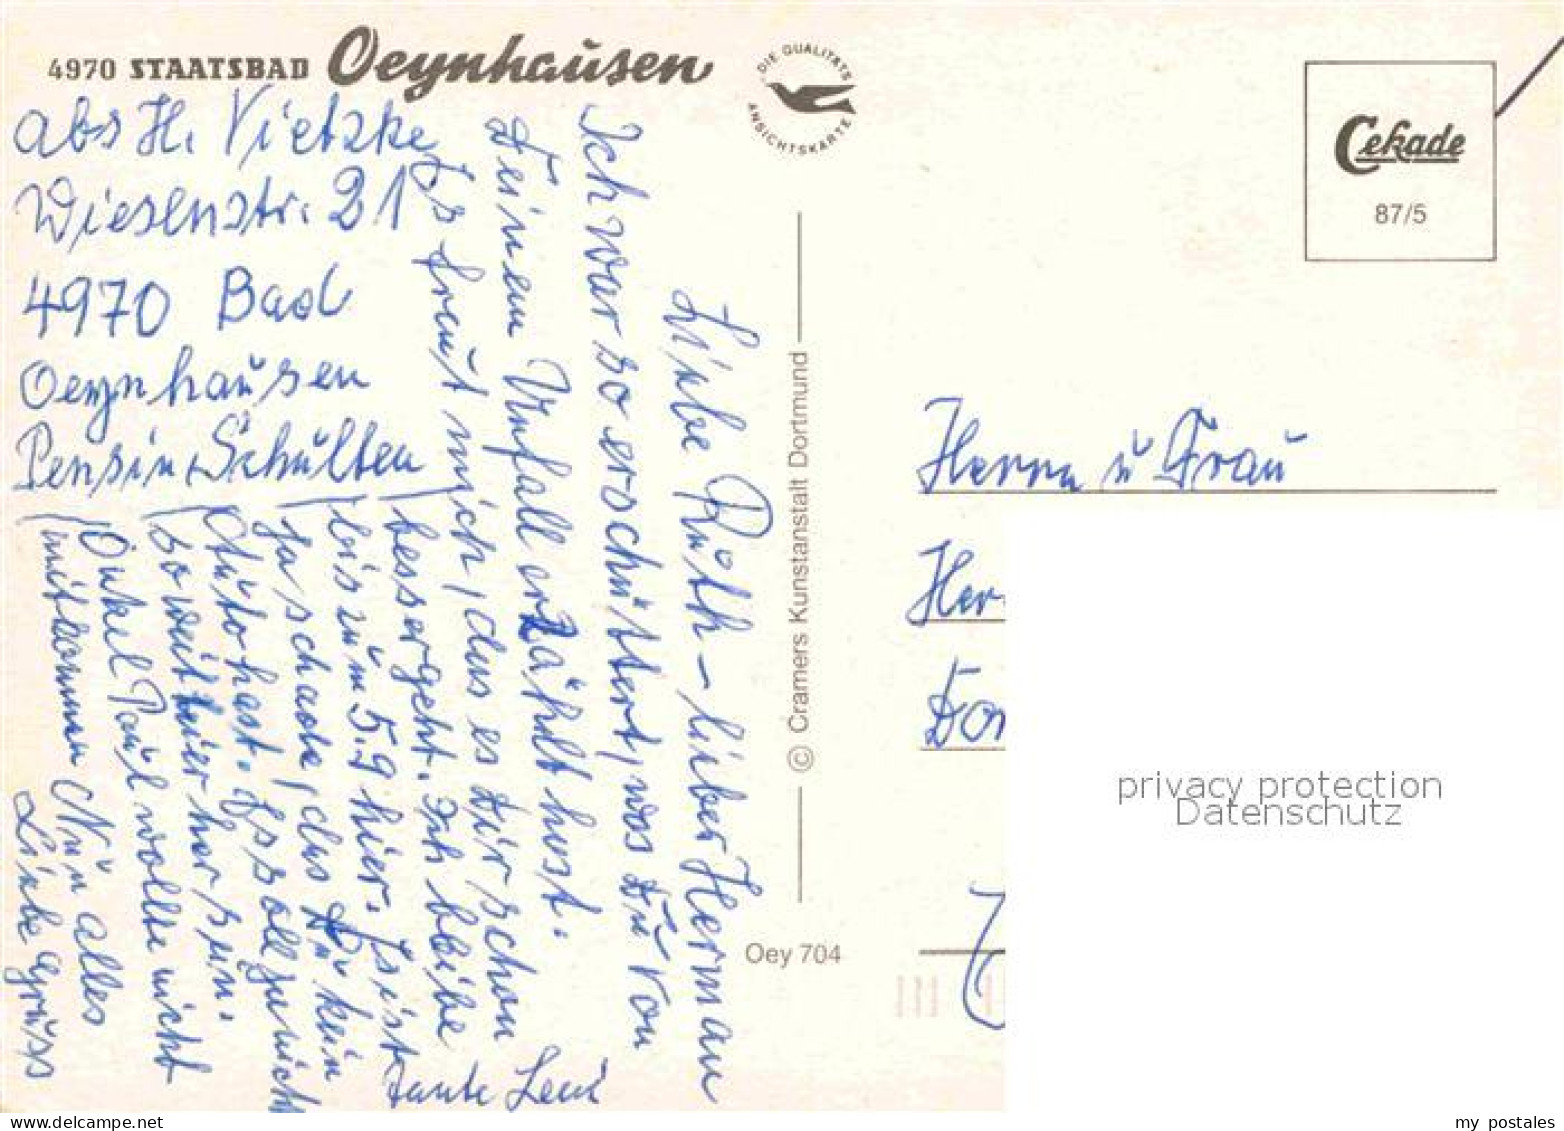 4970 STAATSBAD Oeynhausen
DIE QUALITÄTS
ANSICHTSKARTE
abs H. Vietzke
Wiesenstr. 21
4970 Bad
Oeynhausen
Pension Schülten
Liebe Ruth – liber Herman
Ich war so erschüttert, was Du von
Deinem Unfall erzählt hast.
Es freut mich, das es Dir schon
besser geht. Ich bleibe
bis zum 5.9 hier. Es ist
ja schade, das Du kein
Auto hast. Es soll ja nicht
so weit hier her sein.
Onkel Paul wollte nicht
mitkommen Nun alles
Liebe Grüss
Tante Leni
© Cramers Kunstanstalt Dortmund
Oey 704
Cekade
87/5
Herrn u Frau
Her
Dor
privacy protection
Datenschutz
my postales